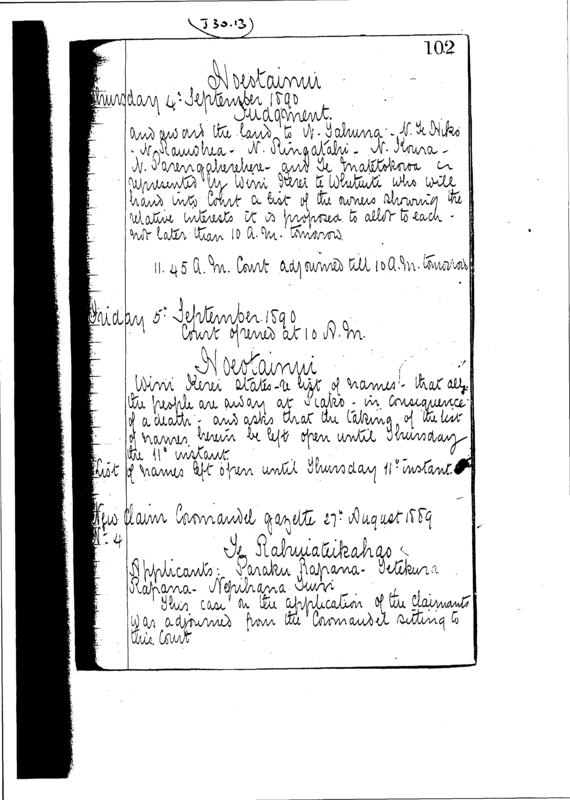 J 30.13
102
Noeotainui
Thursday 4th September 1890
Judgment.
and award the land to N. Tahuna - N. Te Hiko
- N. Ramohea - N. Ringatahi - N. Koura -
N. Parengaherehere - and Te as
represented by Wini Kerei te Whetuiti who will
hand into Court a list of the owners showing the
relative interests it is proposed to allot to each -
not later than 10 A.M. tomorrow
11.45 A.M. Court adjourned till 10 A.M. tomorrow
Friday 5th September 1890
Court opened at 10 A.M.
Noeotainui
Wini Kerei states - re list of names - that all
the people are away at Piako - in consequence
of a death - and asks that the taking of the list
of names herein be left open until Thursday
the 11th instant.
List of names left open until Thursday 11th instant.
New Claim Coromandel gazette 27th August 1889
No 4
Te Rahuiateikahao
Applicants: Paraku Rapana - Tetekura
Rapana - Nepihana Tuiri
This case on the application of the Claimants
was adjourned from the Coromandel sitting to
this Court